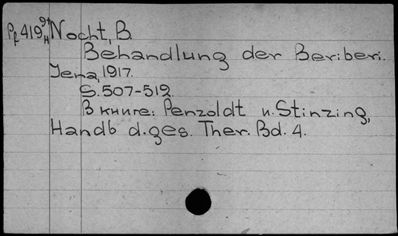 Nocht, B.
Behandlung der Beriberi.
Jena, 1917.
S. 507-519.
В книге: Penzoldt u. Stinzing,
Handb d. ges. Ther. Bd. 4.